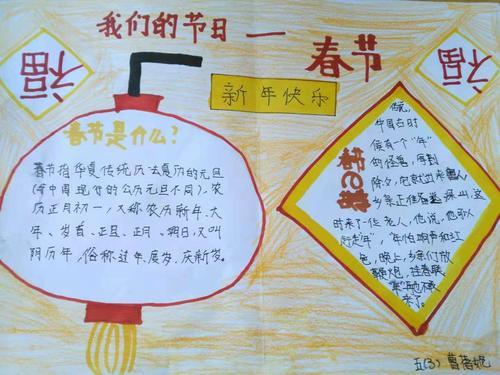 我们的节日一
春节
福
福
新年快乐
春节是什么?
春节指华夏传统历法农历的元旦
(与中国现行的公历元旦不同)。农
历正月初一,又称农历新年、大
年、岁首、正旦、正月、朔日,又叫
阴历年,俗称过年度岁、庆新岁。
传说,
中国古时
候有一个"年"
的怪兽,每到
除夕,它就出来
乡亲正准备 深山,这
时来了一位老人,他说,他可以
赶走"年","年怕响声和红
色,晚上,乡亲们放
鞭炮,挂春联
"年"也不敢
来了。
五(3) 曹蓓妮